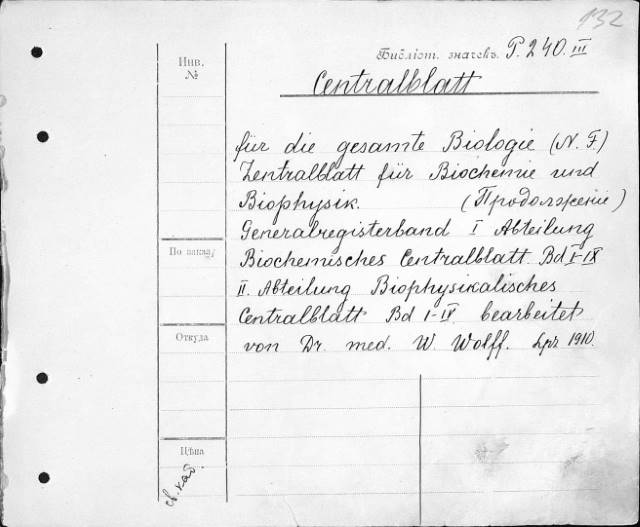 132
Инв.
№
Библіот. значекъ. P. 240. III
Centralblatt
für die gesamte Biologie (N. F.)
Zentralblatt für Biochemie und
Biophysik. (Продолженіе)
Generalregisterband I Abteilung
Biochemisches Centralblatt Bd I-IX
II. Abteilung Biophysikalisches
Centralblatt Bd I-IV bearbeitet
von Dr. med. W. Wolff. Lpz 1910.
По заказу
Откуда
Цѣна